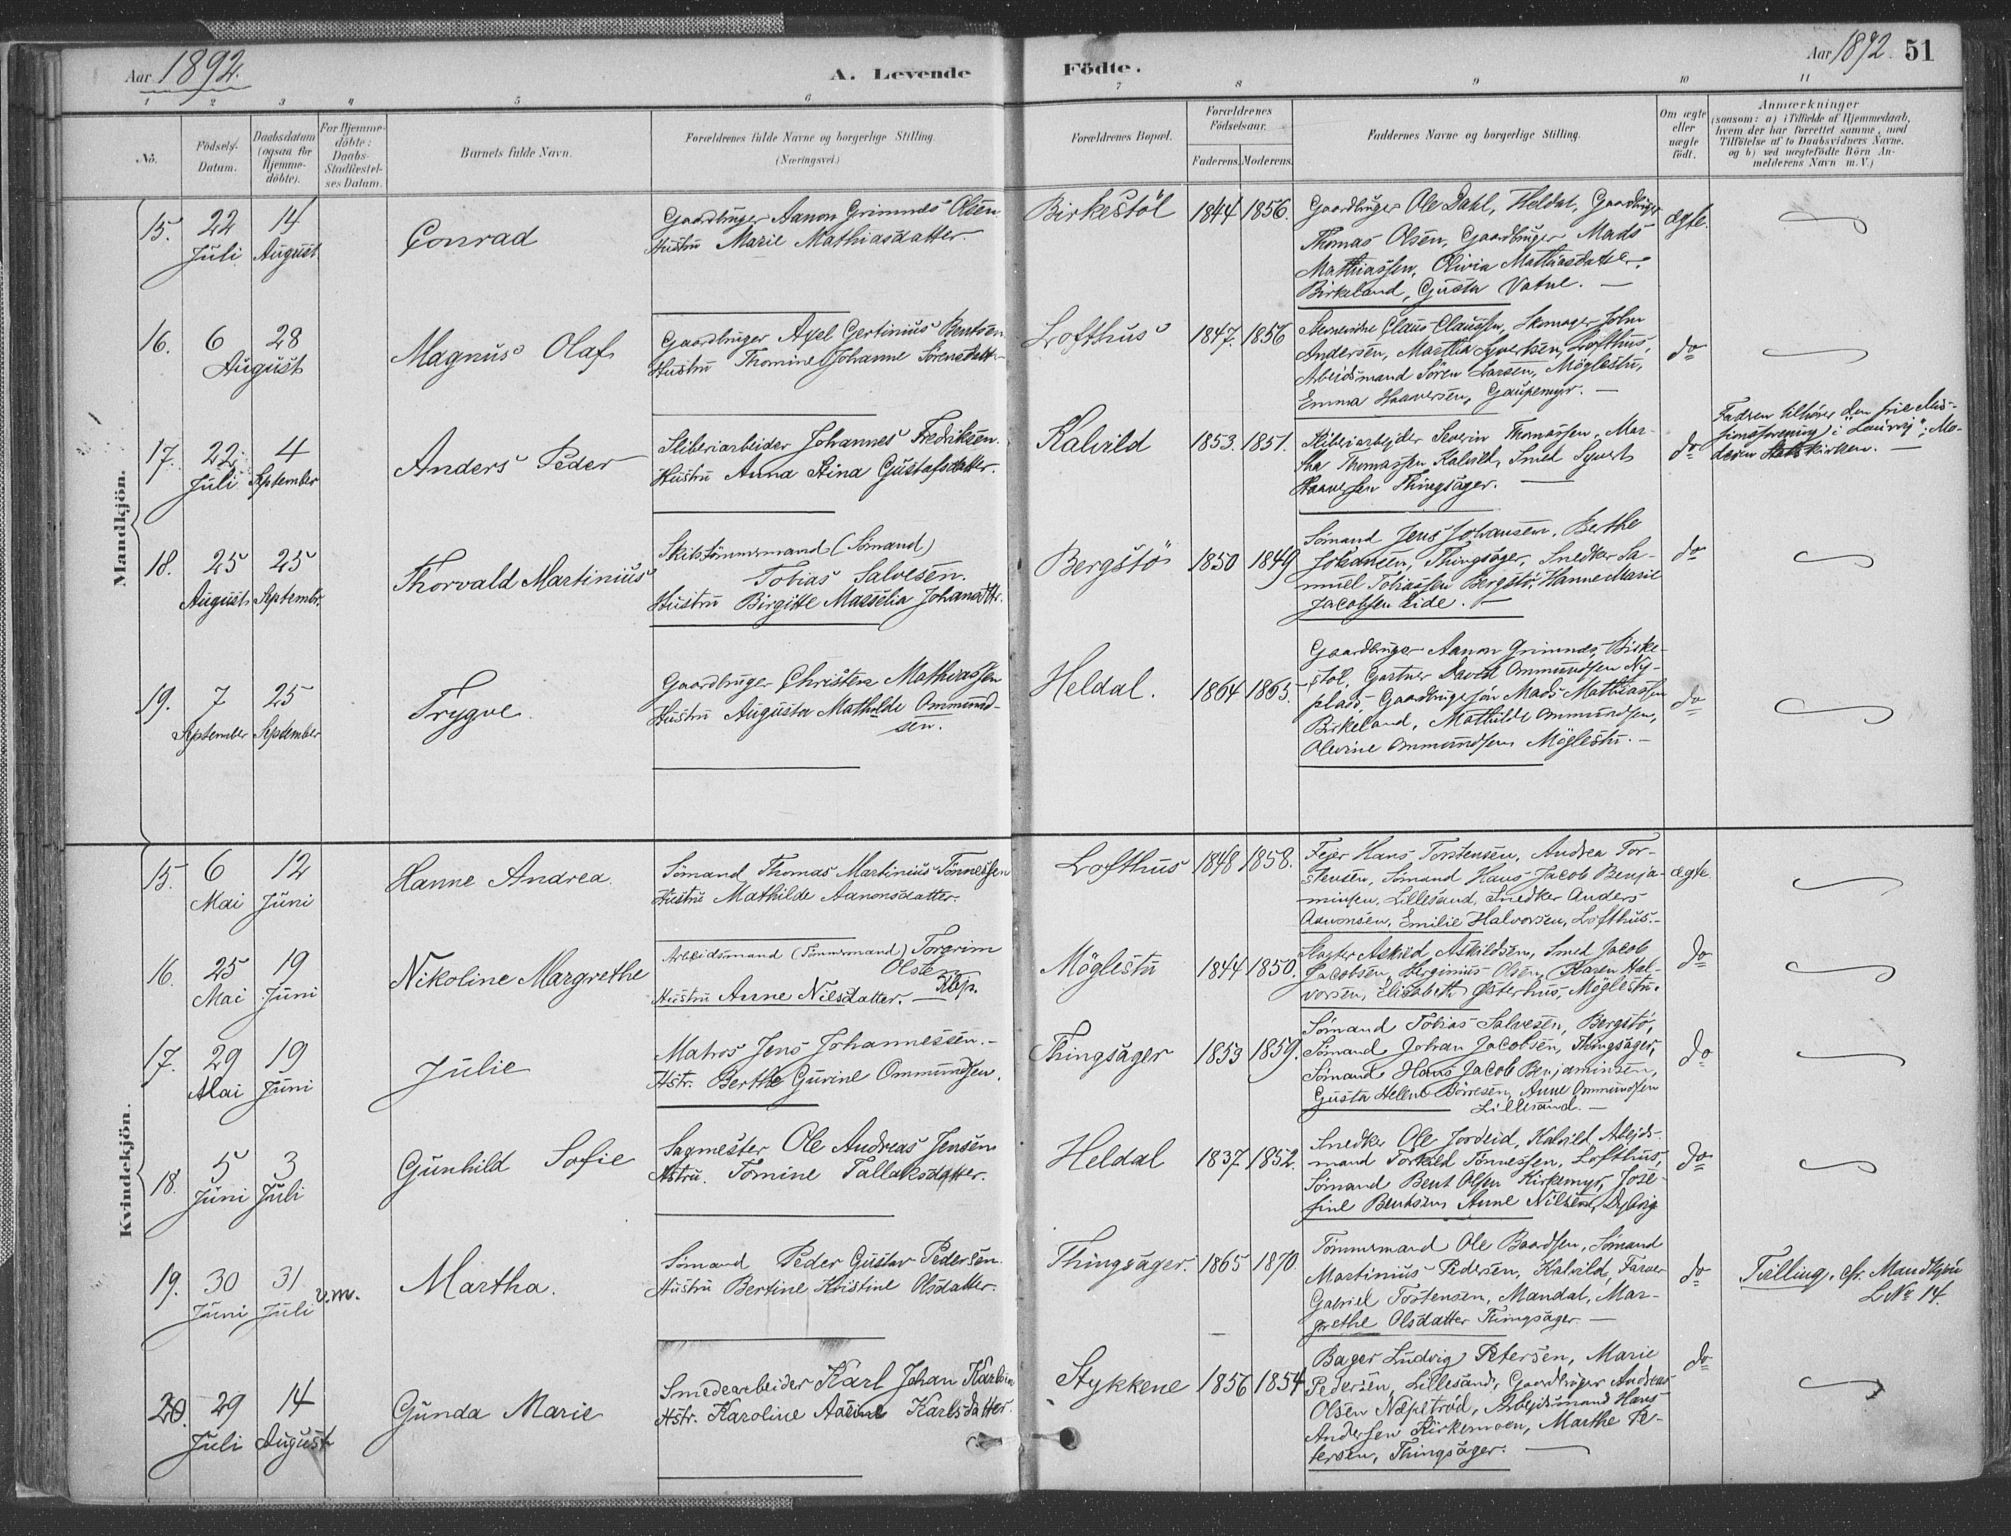 Aar 1892.
A. Levende Födte.
Aar 1892. 51
1 2 3 4 5 6 7 8 9 10 11
No.
Födsels-
Datum.
Daabsdatum
(ogsaa for
Hjemme-
döbte).
For Hjemme-
döbte:
Daabs-
Stadfæstel-
ses Datum.
Barnets fulde Navn.
Forældrenes fulde Navne og borgerlige Stilling.
(Næringsvei.)
Forældrenes Bopæl.
Forældrenes
Födselsaar.
Faderens. Moderens.
Faddernes Navne og borgerlige Stilling.
Om ægte
eller
uægte
födt.
Anmærkninger
(saasom: a) i Tilfælde af Hjemmedaab,
hvem der har forrettet samme, med
Tilföielse af to Daabsvidners Navne,
og b) ved uægtefödte Börn An-
melderens Navn m. V.)
Mandkjön.
15. 22 Juli 14 August
Conrad
Gaardbruger Aanon Grimnes Olsen
Hustru Marie Mathiasdatter.
Birkestöl 1844 1856.
Gaardbruger Ole Dahl, Heldal, Gaardbruger
Thomas Olsen, Gaardbruger Mads
Mathiassen, Olivia Mathiasdatter,
Birkeland, Gusta Vatne. —
ægte.
16. 6 28 August
Magnus Olaf
Gaardbruger Axel Gertinius Bentsen
Hustru Thomine Johanne Sörensdatter
Lofthus 1847. 1856
Claus Claussen, Skomager John
Andersen, Martha Syvertsen, Lofthus,
Arbeidsmand Sören Larsen, Möglestu,
Emma Haaversen, Gaupemyr. —
do
17. 22 Juli 4 September
Anders Peder
Sliberiarbeider Johannes Fredriksen.
Hustru Anna Stina Gustafsdatter.
Kalvild 1853. 1851.
Sliberiarbejder Severin Thomassen, Mar-
tha Thomassen Kalvild, Smed Syvert
Haaversen Thingsager. —
do
Fadren tilhörer den frie Mis-
sionsforening i Laurvig, Mo-
deren Statskirken. —
18. 25 August 25 Septembr.
Thorvald Martinius
Skibstömmermand (Sömand)
Tobias Salvesen.
Hustru Birgitte Masselia Johansdtr.
Bergstö 1850 1849
Sömand Jens Johansen, Bethe
Johansen, Thingsager, Snedker Sa-
muel Tobiassen Bergstö, Hanne Marie
Jacobsen Eide. —
do
19. 7 September 25 September
Trygve.
Gaardbruger Christen Mathiassen
Hustru Augusta Mathilde Ommund-
sen.
Heldal. 1864 1865.
Gaardbruger Aanon Grimnes, Birke-
stöl, Gartner David Ommundsen Ny-
plads, Gaardbruger Mads Mathiassen
Birkeland, Mathilde Ommundsen,
Olevine Ommundsen Möglestu. —
do
Kvindekjön.
15. 6 Mai 12 Juni
Hanne Andrea.
Sömand Thomas Martinius Tönnessen
Hustru Mathilde Aanonsdatter.
Lofthus 1848 1858.
Feier Hans Torstensen, Andrea Tor-
stensen, Sömand Hans Jacob Benja-
minsen, Lillesand, Snedker Anders
Aanonsen, Emilie Halvorsen, Lofthus. —
ægte
16. 25 Mai 19 Juni
Nikoline Margrethe
Arbeidsmand (Tömmermand) Torgrim
Olsen
Hustru Anne Nilsdatter.
Möglestu 1844 1850.
Askild Askildsen, Smed Jacob
Jacobsen, Herginius Olsen, Karen Hal-
vorsen, Elisabeth Österhus, Möglestu.
do
17. 29 Mai 19 Juni
Julie
Matros Jens Johannessen. —
Hstr. Berthe Gurine Ommundsen.
Thingsager 1853 1859.
Sömand Tobias Salvesen, Bergstö,
Sömand Johan Jacobsen, Thingsager,
Sömand Hans Jacob Benjaminsen,
Gusta Helene Börresen, Anne Ommundsen
Lillesand. —
do
18. 5 Juni 3 Juli
Gunhild Sofie
Sagmester Ole Andreas Jensen
Hstru. Tomine Tallaksdatter.
Heldal 1837. 1852.
Snedker Ole Jordeid, Kalvild, Abejds-
mand Torkild Tönnessen, Lofthus,
Sömand Bent Olsen Kirkemyr, Jose-
fine Bentsen, Anne Nilsen, Dybvig
do
19. 30 Juni 31 Juli v.m.
Martha.
Sömand Peder Gustav Pedersen.
Hustru Bertine Kristine Olsdatter.
Thingsager. 1865 1870.
Tömmermand Ole Baardsen, Sömand
Martinius Pedersen, Kalvild, Farver
Gabriel Torstensen, Mandal, Mar-
grethe Olsdatter Thingsager. —
do
Tvilling, cfr. Mandkjön
L. Nr 14.
20. 29 Juli 14 August
Gunda Marie
Smedearbeider Karl Johan Karlsen
Hstr. Karoline Karlsdatter.
Stykkene 1856 1854
Bager Ludvig Petersen, Marie
Pedersen, Lillesand, Gaardbruger Andreas
Olsen Næpetröd, Arbejdsmand Hans
Andersen Kirkemoen, Marthe Pe-
tersen, Thingsager. —
do